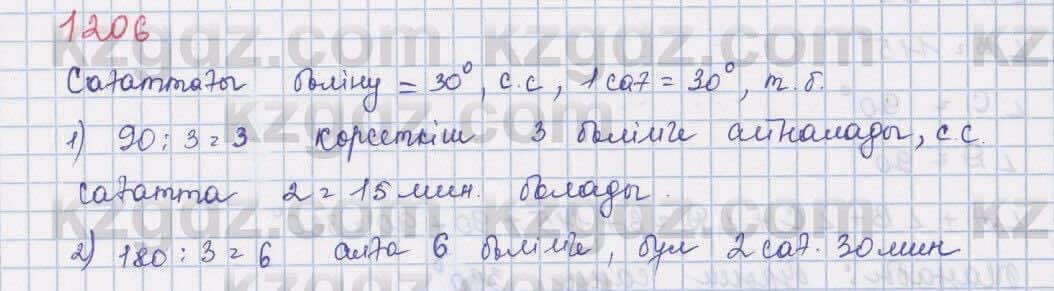 1206
Сағаттағы бөліну = 30°, с.с, 1 сағ = 30°, т.б.
1) 90 : 3 = 3 көрсеткіш 3 бөлімге айналады, с.с.
сағатта 2 = 15 мин. болады.
2) 180 : 3 = 6 алта 6 бөлімге, бұл 2 сағ. 30 мин